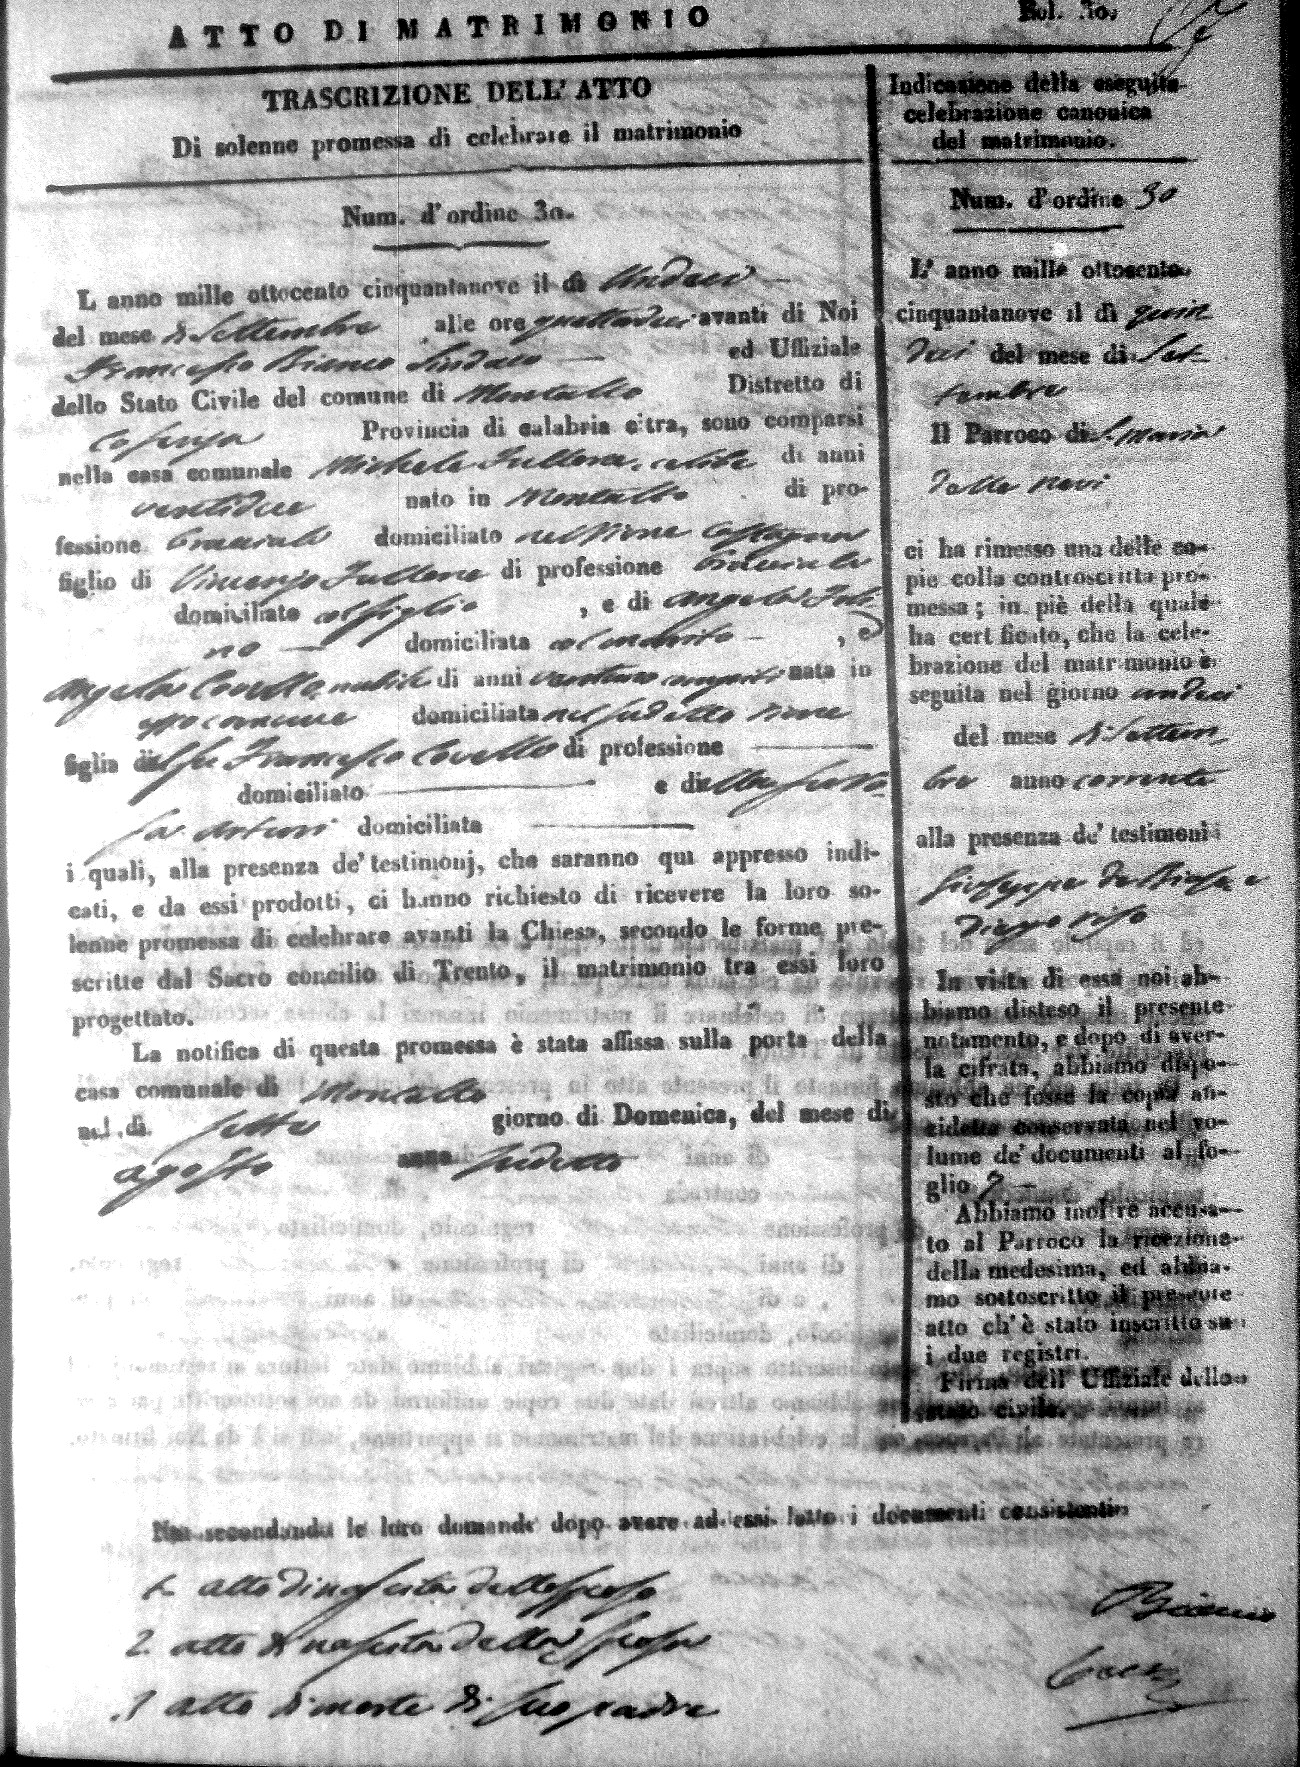 ATTO DI MATRIMONIO
Fol. No.
TRASCRIZIONE DELL' ATTO
Di solenne promessa di celebrare il matrimonio
Num. d'ordine 30.
L anno mille ottocento cinquantanove il dì Undeci
del mese di Settembre alle ore quattordici avanti di Noi
Francesco Bianco Sindaco ed Uffiziale
dello Stato Civile del comune di Montalto Distretto di
Cosenza Provincia di calabria citra, sono comparsi
nella casa comunale Michele celibe di anni
ventidue nato in Montalto di pro-
fessione Bracciale domiciliato nel Rione
figlio di Vincenzo di professione Bracciale
domiciliato col figlio , e di Angela
no domiciliata col marito , e
Angela Covello nubile di anni ventuno compiti nata in
esso comune domiciliata nel sudetto Rione
figlia di Francesco Covello di professione
domiciliato e di
sa Arturi domiciliata
i quali, alla presenza de' testimonj, che saranno qui appresso indi-
cati, e da essi prodotti, ci hanno richiesto di ricevere la loro so-
lenne promessa di celebrare avanti la Chiesa, secondo le forme pre-
scritte dal Sacro concilio di Trento, il matrimonio tra essi loro
progettato.
La notifica di questa promessa è stata affissa sulla porta della
casa comunale di Montalto
nel dì sette giorno di Domenica, del mese di
agosto anno sudetto
Indicazione della eseguita
celebrazione canonica
del matrimonio.
Num. d'ordine 30
L' anno mille ottocento
cinquantanove il dì quin
deci del mese di Set
tembre
Il Parroco di S. Maria
della Nevi
ci ha rimesso una delle co-
pie colla controscritta pro-
messa; in piè della quale
ha certificato, che la cele-
brazione del matrimonio è
seguita nel giorno undeci
del mese di Settem
bre anno corrente
alla presenza de' testimoni
Giuseppe De e
In vista di essa noi ab-
biamo disteso il presente
notamento, e dopo di aver-
la cifrata, abbiamo dispo-
sto che fosse la copia an-
zidetta conservata nel vo-
lume de' documenti al fo-
glio 7
Abbiamo inoltre accusa-
to al Parroco la ricezione
della medesima, ed abbia-
mo sottoscritto il presente
atto ch' è stato inscritto su
i due registri.
Firma dell' Uffiziale dello
stato civile.
Noi secondando le loro domande dopo avere ad essi letto i documenti consistenti
1. atto di nascita dello sposo
2. atto di nascita della sposa
3 atto di morte di suo padre
Bianco